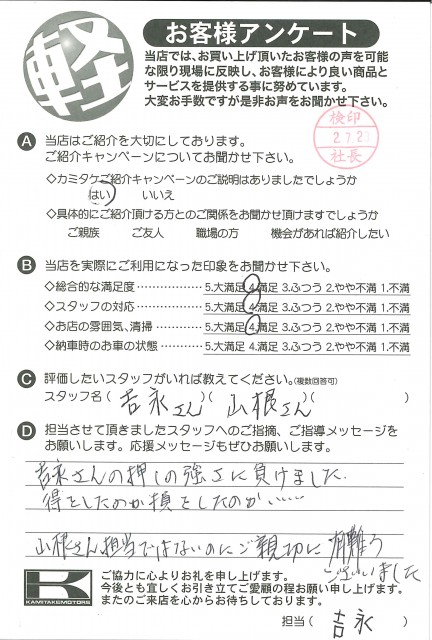 軽
お客様アンケート
当店では、お買い上げ頂いたお客様の声を可能
な限り現場に反映し、お客様により良い商品と
サービスを提供する事に努めています。
大変お手数ですが是非お声をお聞かせ下さい。
検印
2.7.23
社長
A 当店はご紹介を大切にしております。
ご紹介キャンペーンについてお聞かせ下さい。
◇カミタケご紹介キャンペーンのご説明はありましたでしょうか
はい いいえ
◇具体的にご紹介頂ける方とのご関係をお聞かせ頂けますでしょうか
ご親族 ご友人 職場の方 機会があれば紹介したい
B 当店を実際にご利用になった印象をお聞かせ下さい。
◇総合的な満足度 5.大満足 4.満足 3.ふつう 2.やや不満 1.不満
◇スタッフの対応 5.大満足 4.満足 3.ふつう 2.やや不満 1.不満
◇お店の雰囲気、清掃 5.大満足 4.満足 3.ふつう 2.やや不満 1.不満
◇納車時のお車の状態 5.大満足 4.満足 3.ふつう 2.やや不満 1.不満
C 評価したいスタッフがいれば教えてください。(複数回答可)
スタッフ名( 吉永さん )( 山根さん )( )
D 担当させて頂きましたスタッフへのご指摘、ご指導メッセージを
お願いします。応援メッセージもぜひお願いします。
吉永さんの押しの強さに負けました.
得をしたのか損をしたのか……
山根さん担当ではないのにご親切に有難う
ございました
K
KAMITAKEMOTORS
ご協力に心よりお礼を申し上げます。
今後とも宜しくお引き立てご愛顧の程お願い申し上げます。
またのご来店を心からお待ちしております。
担当( 吉永 )